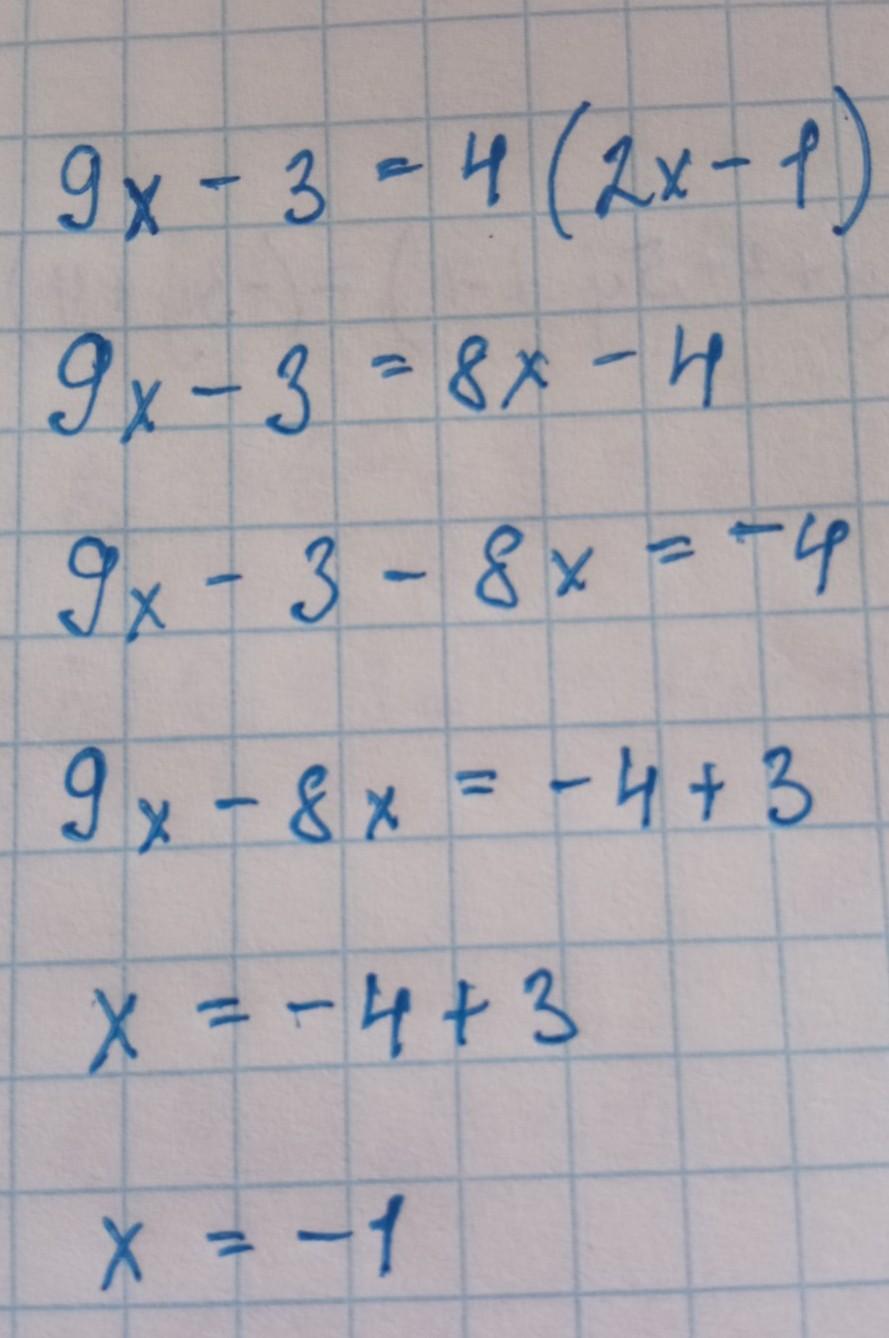 9x - 3 = 4 (2x - 1)
9x - 3 = 8x - 4
9x - 3 - 8x = -4
9x - 8x = -4 + 3
x = -4 + 3
x = -1